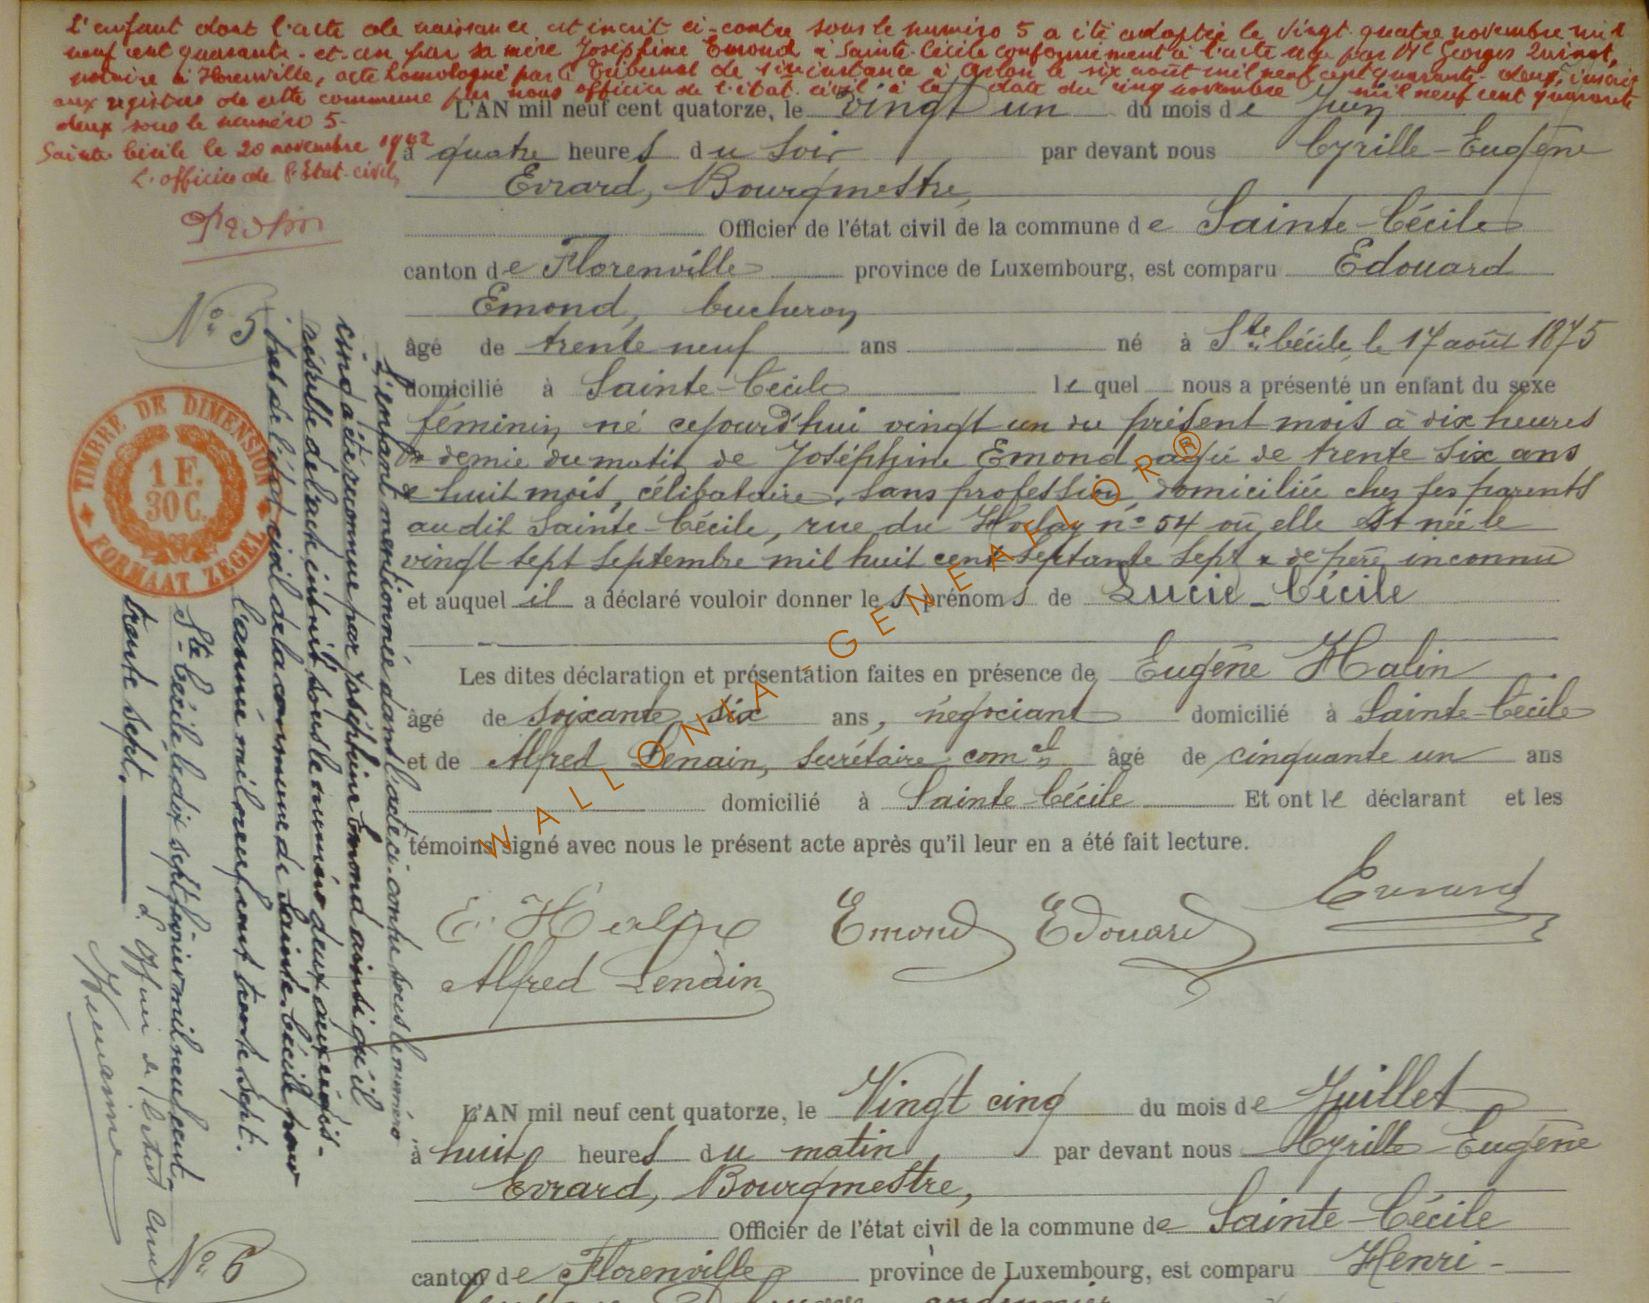 L'enfant dont l'acte de naissance est inscrit ci-contre sous le numéro 5 a été adoptée le vingt quatre novembre mil
neuf cent quarante-et-un par sa mère Joséphine Emond à Sainte-Cécile conformément à l'acte reçu par Me Georges
notaire à Florenville, acte homologué par le Tribunal de 1ère instance à Arlon le six août mil neuf cent quarante-deux, inscrit
aux registres de cette commune par nous officier de l'état civil à la date du cinq novembre mil neuf cent quarante
deux sous le numéro 5.
Sainte Cécile le 20 novembre 1942
L'officier de l'Etat-civil,
L'AN mil neuf cent quatorze, le vingt un du mois de Juin
à quatre heures du soir par devant nous Cyrille-Eugène
Evrard, Bourgmestre,
Officier de l'état civil de la commune de Sainte-Cécile
canton de Florenville province de Luxembourg, est comparu Edouard
Emond, bucheron,
âgé de trente neuf ans né à Ste Cécile le 17 août 1875
domicilié à Sainte-Cécile lequel nous a présenté un enfant du sexe
féminin, né cejourd'hui vingt un du présent mois à dix heures
& demie du matin, de Joséphine Emond, agée de trente six ans
& huit mois, célibataire, sans profession, domiciliée chez ses parents
audit Sainte-Cécile, rue du n° 54 où elle est née le
vingt-sept Septembre mil huit cent septante sept & de père inconnu
et auquel il a déclaré vouloir donner les prénoms de Lucie-Cécile
Les dites déclaration et présentation faites en présence de Eugène Halin
âgé de soixante six ans, négociant domicilié à Sainte-Cécile
et de Alfred Lenain, secrétaire comal, âgé de cinquante un ans
domicilié à Sainte Cécile Et ont le déclarant et les
témoins signé avec nous le présent acte après qu'il leur en a été fait lecture.
Emond Edouard Evrard
Alfred Lenain
N° 5
TIMBRE DE DIMENSION
1 F.
30 C.
FORMAAT ZEGEL
L'enfant mentionnée dans l'acte ci-contre sous le numéro
cinq a été reconnue par Joséphine Emond ainsi qu'il
résulte de l'acte inscrit sous le numéro deux aux
de l'état civil de la commune de Sainte-Cécile pour
l'année mil neuf cent trente sept.
Ste Cécile le dix sept février mil neuf cent
trente sept.
L'officier de l'état civil
WALLONIA-GENEAFLOR®
L'AN mil neuf cent quatorze, le Vingt cinq du mois de Juillet
à huit heures du matin par devant nous Cyrille-Eugène
Evrard, Bourgmestre,
Officier de l'état civil de la commune de Sainte-Cécile
canton de Florenville province de Luxembourg, est comparu Henri-
N° 6